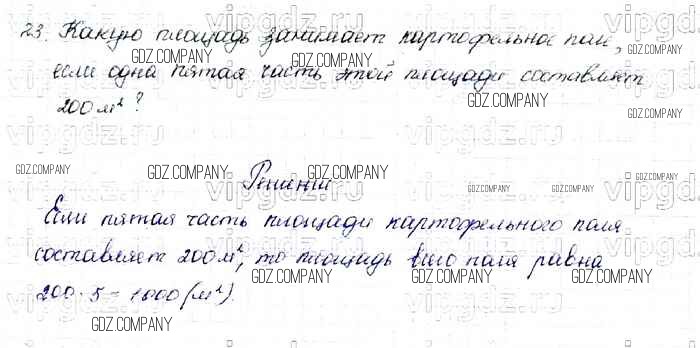 23. Какую площадь занимает картофельное поле,
если одна пятая часть этой площади составляет
200 м²?
Решение
Если пятая часть площади картофельного поля
составляет 200 м², то площадь всего поля равна
200 · 5 = 1000 (м²).
vipgdz.ru
GDZ.COMPANY